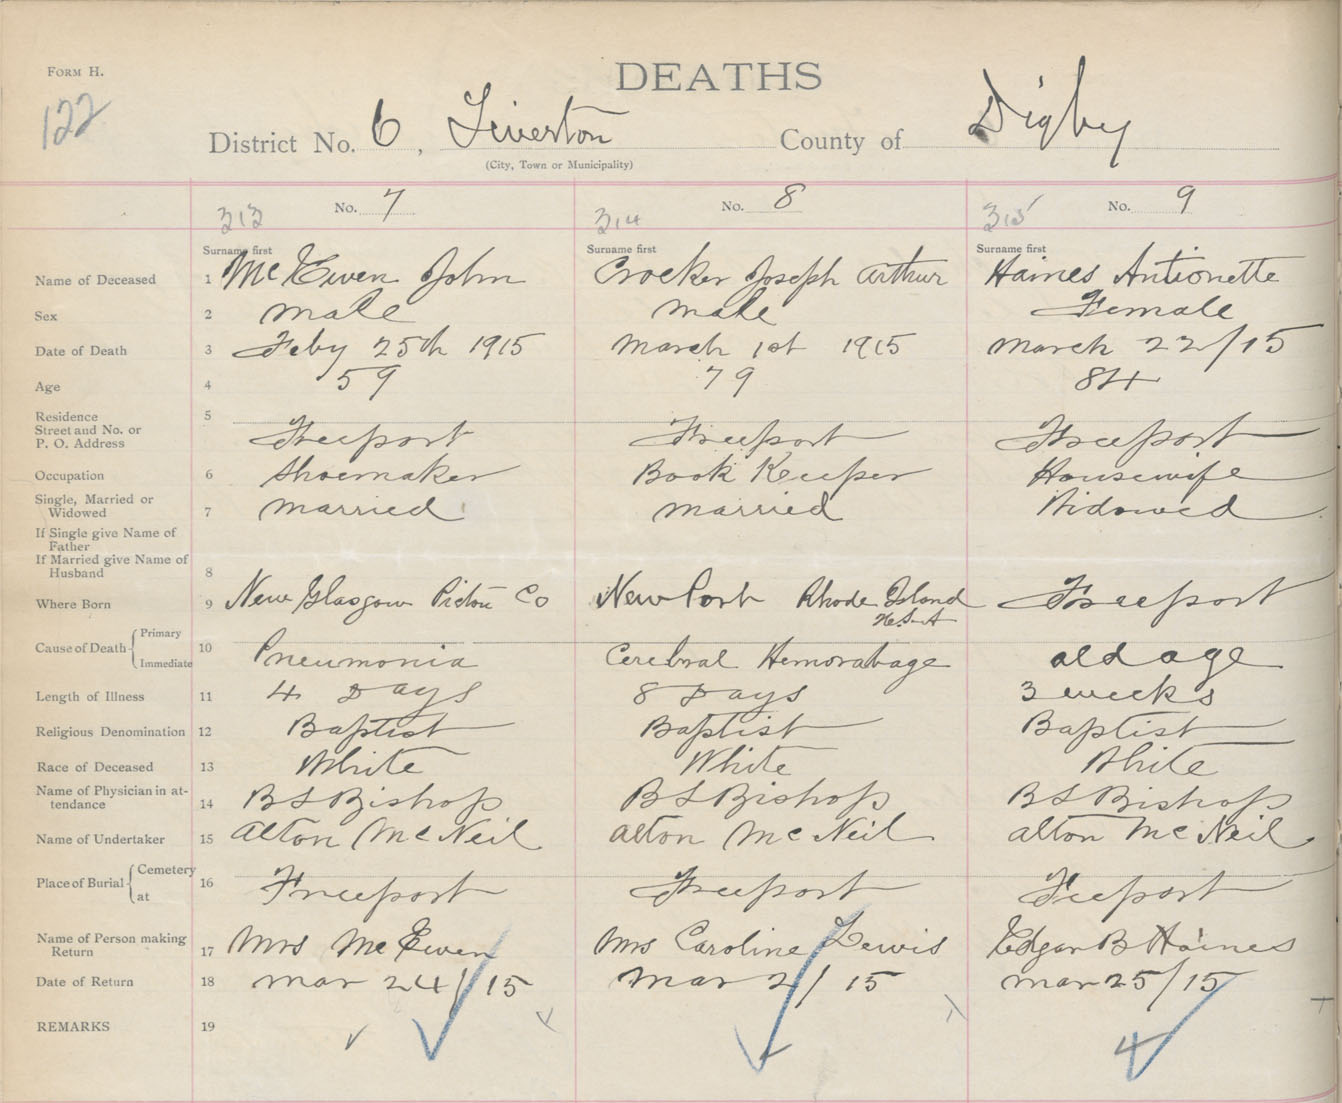 FORM H.
DEATHS
122
District No. 6, Tiverton County of Digby
(City, Town or Municipality)
313 No. 7 314 No. 8 315 No. 9
Surname first Surname first Surname first
Name of Deceased 1 McEwen John Crocker Joseph Arthur Haines Antionette
Sex 2 male male Female
Date of Death 3 Feby 25th 1915 March 1st 1915 March 22/15
Age 4 59 79 84
Residence 5
Street and No. or
P. O. Address Freeport Freeport Freeport
Occupation 6 Shoemaker Book Keeper Housewife
Single, Married or
Widowed 7 married married Widowed
If Single give Name of
Father
If Married give Name of
Husband 8
Where Born 9 New Glasgow Pictou Co New Port Rhode Island Freeport
U.S.A
Cause of Death Primary
10
Immediate Pneumonia Cerebral Hemorahage old age
Length of Illness 11 4 Days 8 Days 3 weeks
Religious Denomination 12 Baptist Baptist Baptist
Race of Deceased 13 White White White
Name of Physician in at-
tendance 14 B L Bishop B L Bishop B L Bishop
Name of Undertaker 15 Alton McNeil Alton McNeil Alton McNeil
Place of Burial Cemetery
16
at Freeport Freeport Feeport
Name of Person making
Return 17 Mrs McEwen Mrs Caroline Lewis Edgar B Haines
Date of Return 18 Mar 24/15 Mar 2/15 Mar 25/15
REMARKS 19